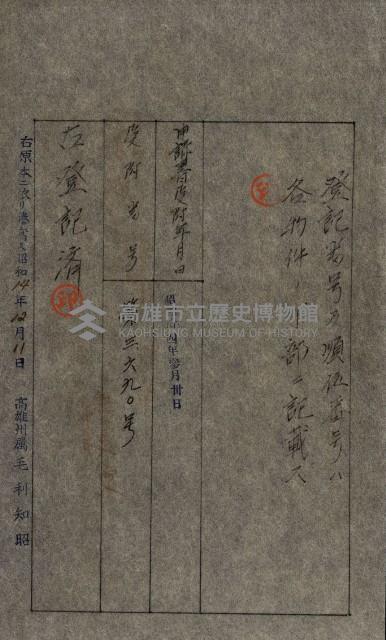 登記番号及順位番号ハ
各物件ノ部ニ記載ス
申請書受附年月日
昭和十四年參月卅日
受附番号
第三六九〇号
右登記済
右原本ニ依リ
昭和14年12月11日
高雄州属 毛利知昭
高雄市立歷史博物館
KAOHSIUNG MUSEUM OF HISTORY